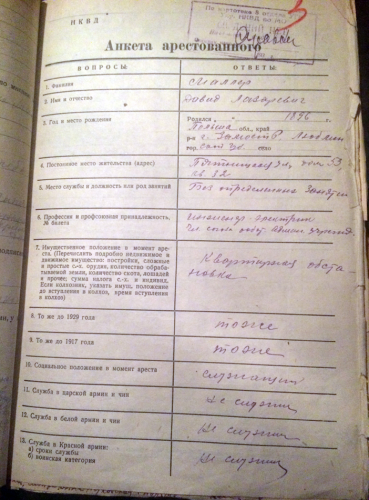 НКВД
Анкета арестованного
ВОПРОСЫ:
ОТВЕТЫ:
1. Фамилия
2. Имя и отчество
Давид Лазаревич
3. Год и место рождения
Родился 1896 г.
Польша обл., край
р-н г. Замостье
гор. село
4. Постоянное место жительства (адрес)
5. Место службы и должность или род занятий
Без определенных занятий
6. Профессия и профсоюзная принадлежность, № билета
инженер-электрик
7. Имущественное положение в момент аре-
ста. (Перечислить подробно недвижимое и
движимое имущество: постройки, сложные
и простые с.-х. орудия, количество обраба-
тываемой земли, количество скота, лошадей
и прочее; сумма налога с.-х. и индивид.
Если колхозник, указать имущ. положение
до вступления в колхоз, время вступления
в колхоз)
Квартирная обста
новка
8. То же до 1929 года
тоже
9. То же до 1917 года
тоже
10. Социальное положение в момент ареста
служащий
11. Служба в царской армии и чин
Не служил
12. Служба в белой армии и чин
Не служил
13. Служба в Красной армии:
а) сроки службы
б) воинская категория
Не служил